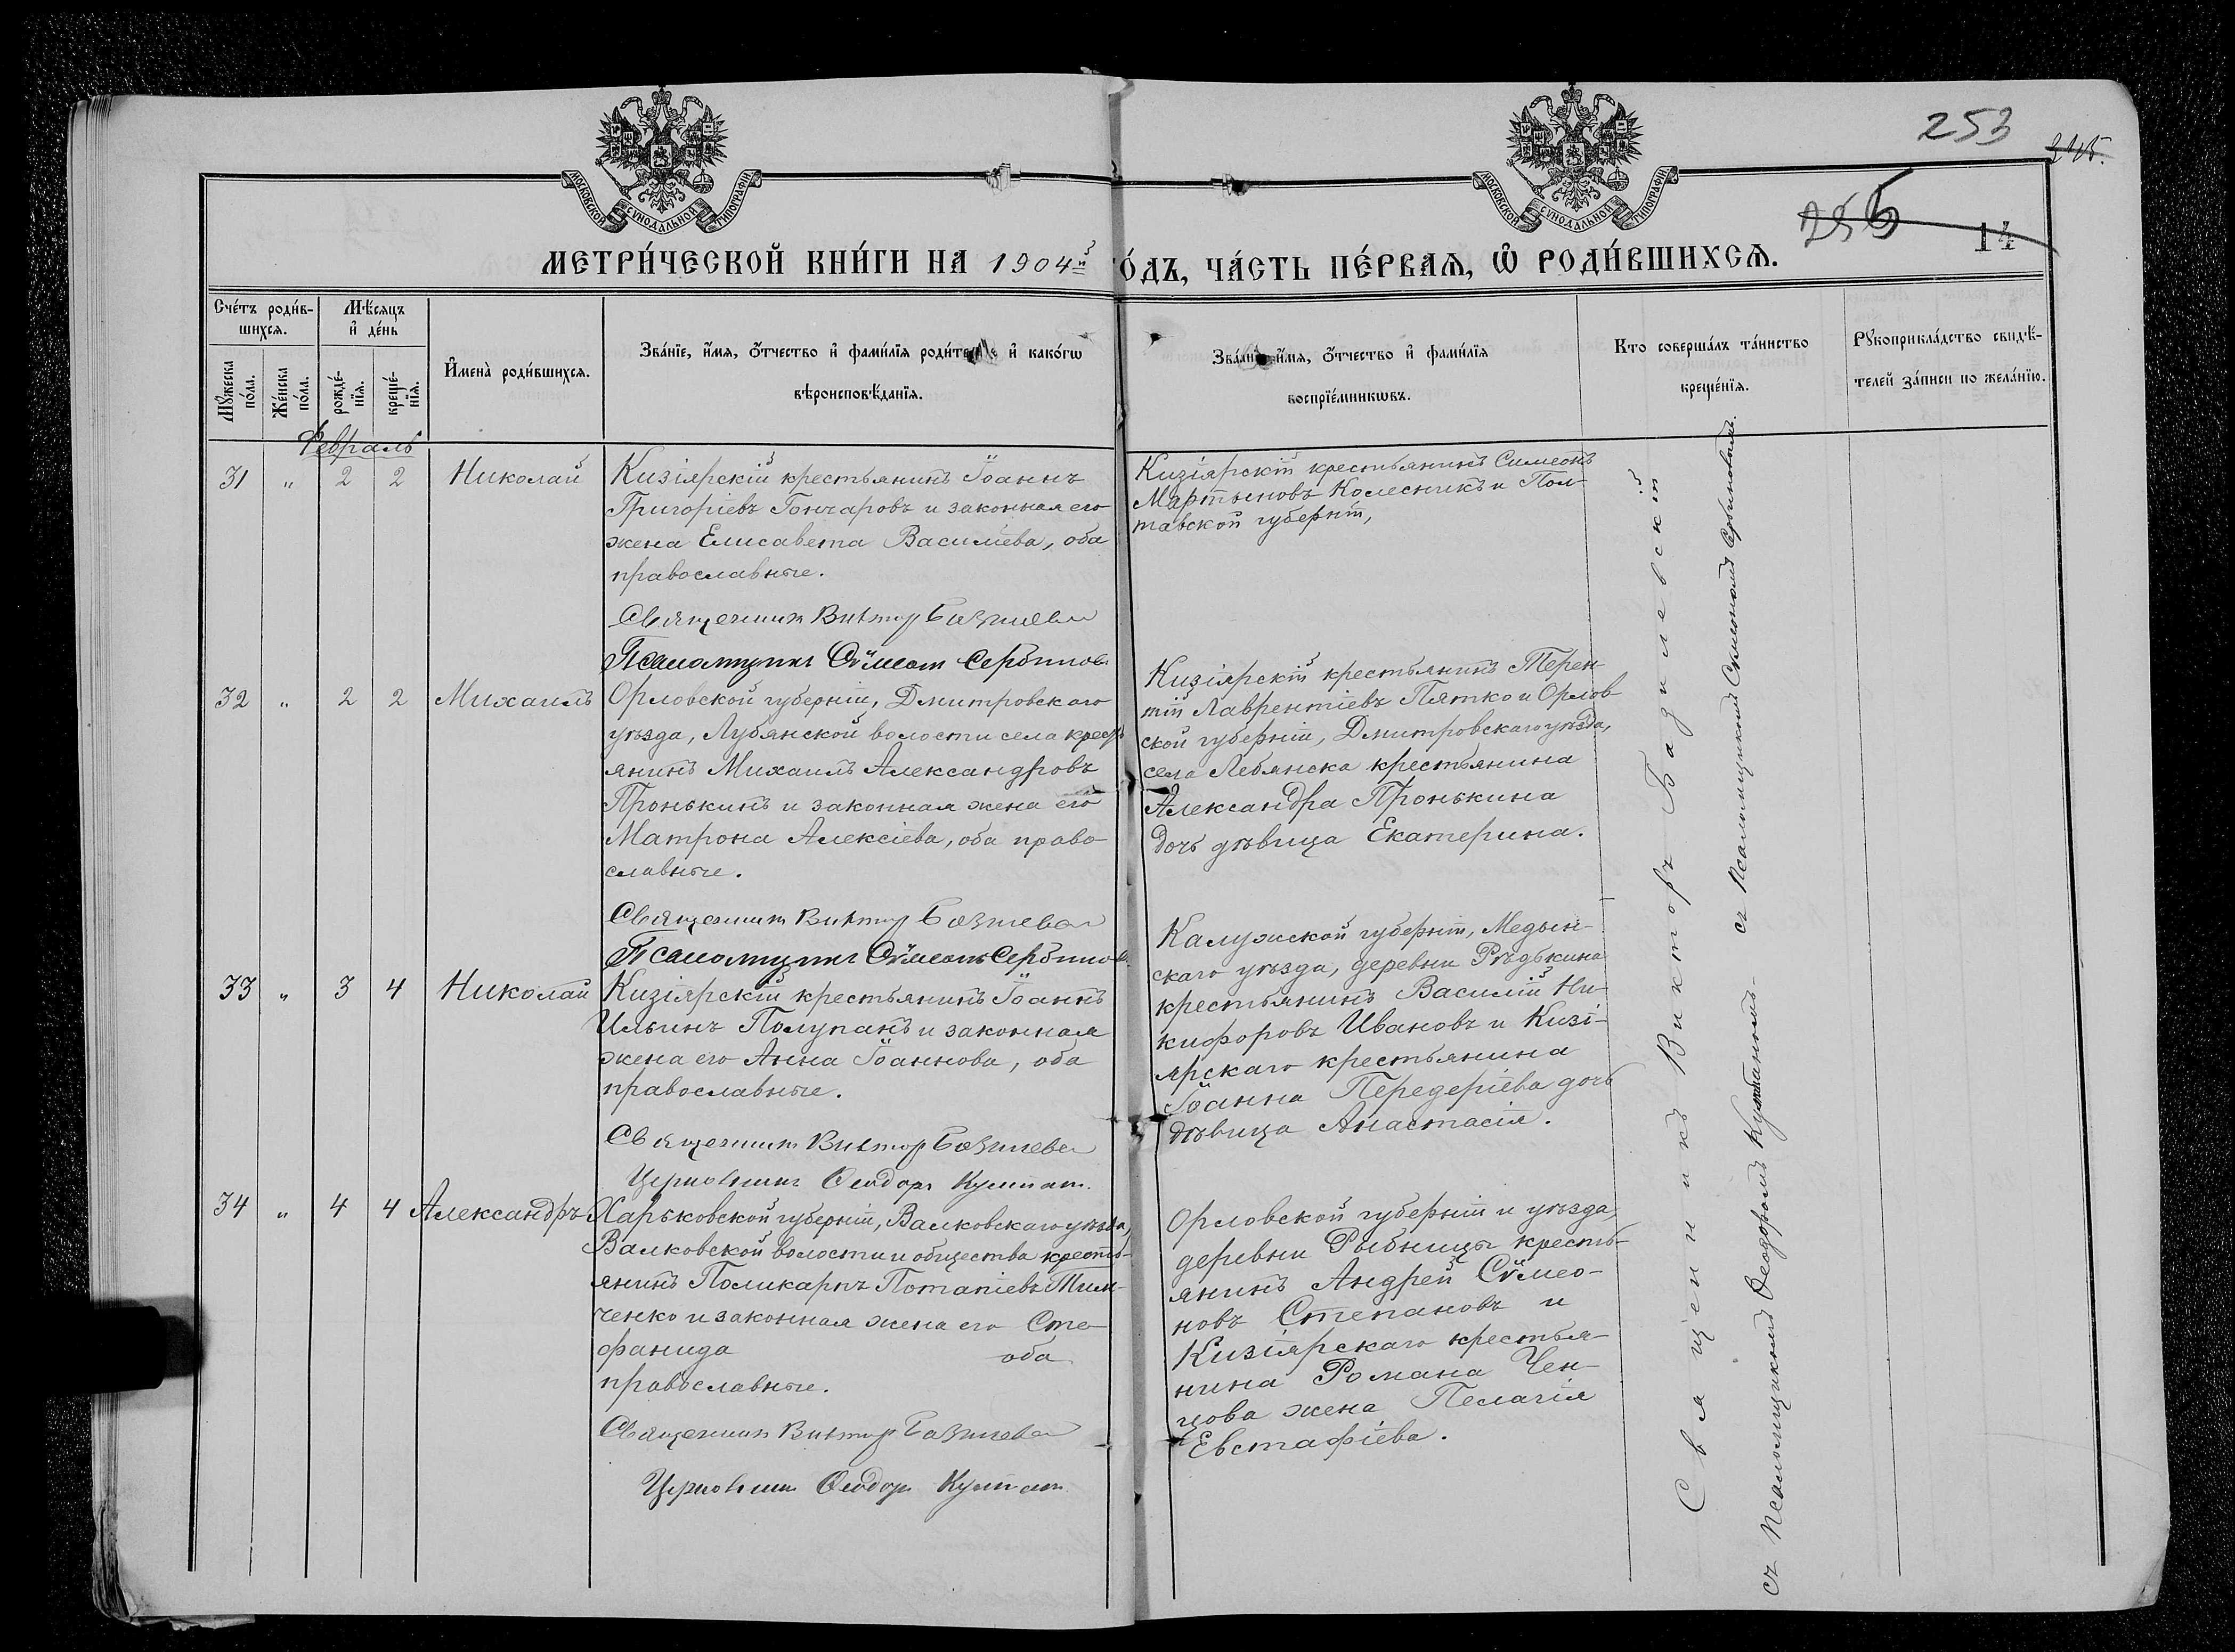 253
245.
256
14
МОСКОВСКОЙ СѴНОДАЛЬНОЙ ТИПОГРАФІИ
МОСКОВСКОЙ СѴНОДАЛЬНОЙ ТИПОГРАФІИ
МЕТРИ́ЧЕСКОЙ КНИ́ГИ НА 1904й О́ДЪ, ЧА́СТЬ ПЕ́РВАѦ, Ѡ҆ РОДИ́ВШИХСѦ.
Сче́тъ роди́в-
шихсѧ.
Мꙋ́жеска по́ла.
Же́нска по́ла.
Мѣ́сѧцъ
и҆ де́нь
рожде́-
нїѧ.
креще́-
нїѧ.
И҆мена̀ роди́вшихсѧ.
Зва́нїе, и҆́мѧ, ѻ҆́тчество и҆ фами́лїѧ роди́те и҆ како́гѡ
вѣроисповѣ́данїѧ.
Зва́ни и҆́мѧ, ѻ҆́тчество и҆ фами́лїѧ
воспрїе́мникѡвъ.
Кто соверша́лъ та́инство
креще́нїѧ.
Рꙋкоприкла́дство свидѣ́-
телей за́писи по жела́нїю.
Февраль
31 " 2 2 Николай
Кизіярскій крестьянинъ Іоаннъ
Григоріевъ Гончаровъ и законная его
жена Елисавета Василіева, оба
православные.
Священникъ Виктор Базилевс
Псаломщикъ Сѵмеонъ Сербинов
Кизіярскій крестьянинъ Симеонъ
Мартыновъ Колесникъ и Пол-
тавской губерніи,
32 " 2 2 Михаилъ
Орловской губерніи, Дмитровскаго
уѣзда, Лубянской волости села крест
янинъ Михаилъ Александровъ
Пронькинъ и законная жена его
Матрона Алексіева, оба право-
славные.
Священникъ Виктор Базилевс
Псаломщикъ Сѵмеонъ Сербинов
Кизіярскій крестьянинъ Терен-
тій Лаврентіевъ Пятко и Орлов-
ской губерніи, Дмитровскаго уѣзда,
села Лебянска крестьянина
Александра Пронькина
дочь дѣвица Екатерина.
33 " 3 4 Николай
Кизіярскій крестьянинъ Іоаннъ
Ильинъ Полупанъ и законная
жена его Анна Іоаннова, оба
православные.
Священникъ Виктор Базилевс
Церковникъ Ѳеодоръ Кушпат.
Калужской губерніи, Медын-
скаго уѣзда, деревни Рѣдькина
крестьянинъ Василій Ни-
кифоровъ Ивановъ и Кизі-
ярскаго крестьянина
Іоанна Передеріева дочь
дѣвица Анастасія.
34 " 4 4 Александръ
Харьковской губерніи, Валковскаго уѣзда,
Валковской волости и общества кресть-
янинъ Поликарпъ Потапіевъ Тим-
ченко и законная жена его Сте-
фанида оба
православные.
Священникъ Виктор Базилевс
Церковник Ѳеодор
Орловской губерніи и уѣзда,
деревни Рыбницы кресть-
янинъ Андрей Сѵмео-
новъ Степановъ и
Кизіярскаго крестья-
нина Романа Чен-
цова жена Пелагія
Евстафіева.
Священникъ Викторъ Базилевскій
съ Псаломщикомъ Ѳеодоромъ съ Псаломщикомъ Симеономъ Сербиновымъ.